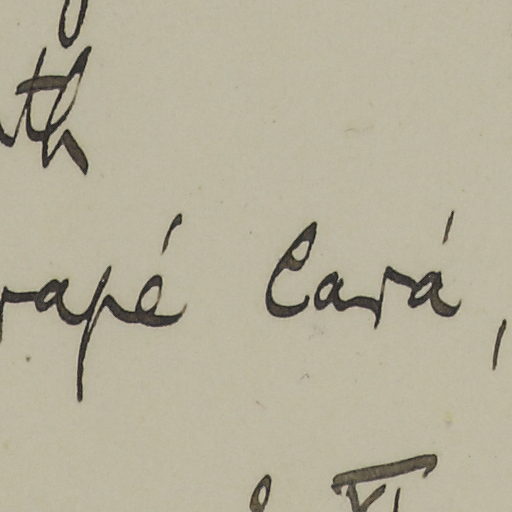 th
rapé Cará,
VI